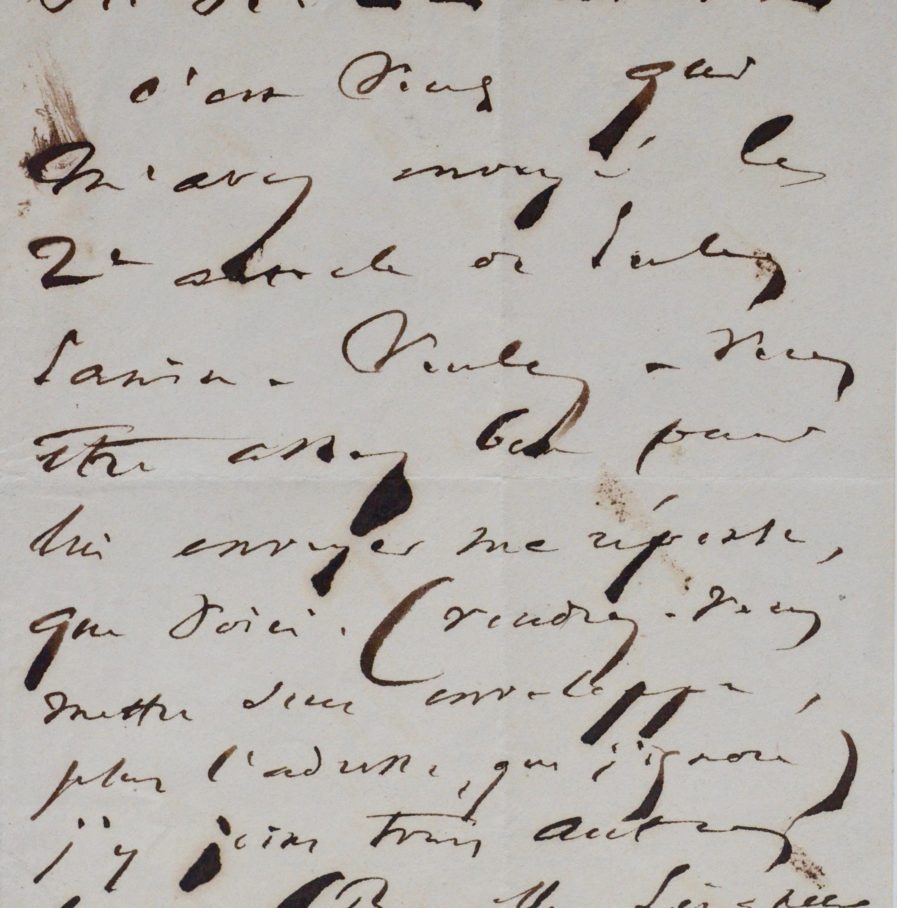 c'est vous qui
m'avez envoyé les
2e article de Jules
Janin. Voulez-vous
être assez bon pour
lui envoyer ma réponse,
que voici. (Voudrez-vous
mettre sous enveloppe,
plus l'adresse, que j'ignore)
j'y joins trois autres